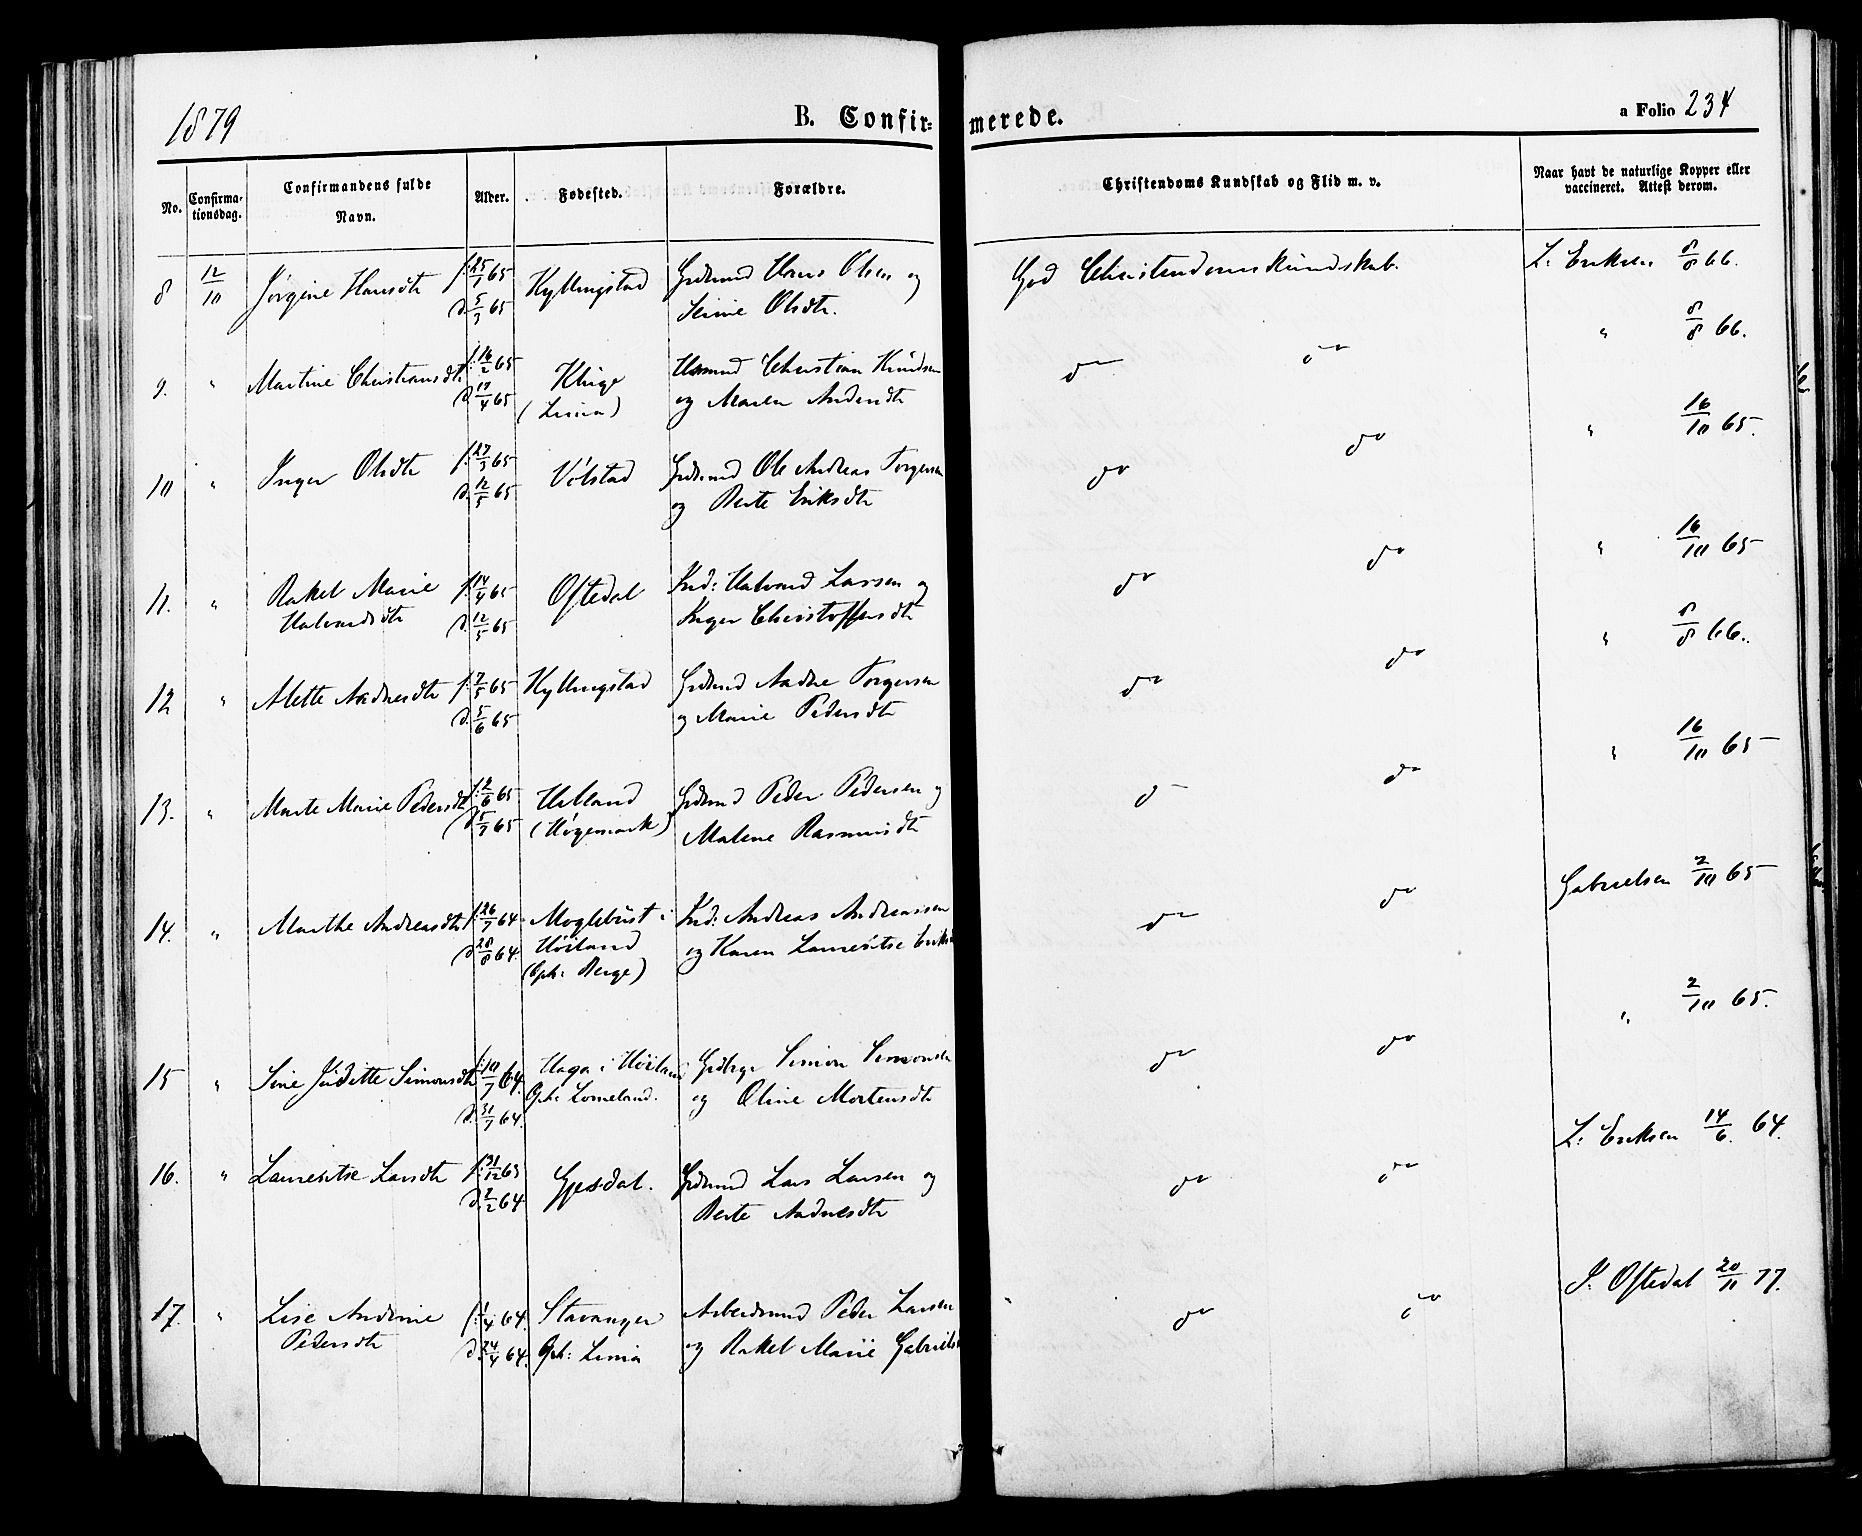 1879
B. Confirmerede.
a Folio 234
No.
Confirmationsdag.
Confirmandens fulde Navn.
Alder.
Fødested.
Forældre.
Christendoms Kundskab og Flid m. v.
Naar havt de naturlige Kopper eller vaccineret. Attest derom.
8 12/10 Jørgine Hansdtr f. 25/1 65 Kyllingstad Grdmnd Hans Olsen og God Christendomskundskab. L: Eriksen 8/8 66.
d. 5/3 65 Olsdtr.
9. " Martine Christiansdtr f. 16/2 65 Christian Knudsen do do " 8/8 66.
d. 17/4 65 (Lima) og Maren
10 " Inger Olsdtr f. 27/3 65 Vølstad Grdmnd Ole Andreas Torgersen do do " 16/10 65.
d. 12/5 65 og Berte Eriksdtr
11. " Rakel Marie f. 14/4 65 Oftedal Halvard Larsen og do do " 16/10 65
Halvardsdtr d. 12/5 65 Inger Christoffersdtr
12 " Mette Aadnesdtr f. 7/5 65 Kyllingstad Grdmnd Aadne Torgersen do do " 8/8 66.
d. 5/6 65 og Marie Pedersdtr
13. " Marte Marie Pedersdtr f. 2/6 65 Grdmnd Peder Pedersen og do do " 16/10 65
d. 5/7 65 (Høgemork) Malene Rasmusdtr
14. " Marthe Andreasdtr f. 26/7 64 Moglebust i Andreas Andreassen do do Gabrielsen 2/10 65
d. 28/8 64. Høiland og Karen Lauritse
(Oph: Berge)
15 " Sine Juditte Simonsdtr f. 10/7 64. Haga i Høiland Simon Simonsen do do " 2/10 65.
d. 31/7 64. Oph: Lomeland. og Oline Mortensdtr
16. " Lauritse Larsdtr f. 31/12 63 Gjesdal. Grdmnd Lars Larsen og do do L: Eriksen 14/6. 64.
d. 2/2 64 Berte Aadnesdtr
17. " Lise Andrine f. 1/4 64. Stavanger Arbeidsmnd Peder Larsen do do J: Oftedal 20/11 77.
Pedersdtr d. 24/4 64. Oph: Lima og Rakel Marie